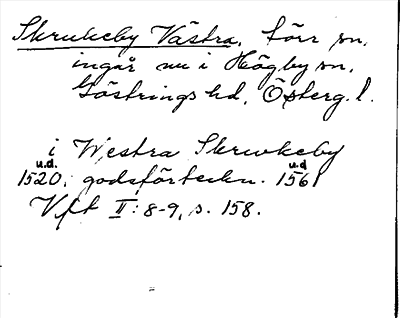 Skrukeby Västra, förr sn.
ingår nu i Högby sn,
Göstrings hd, Österg. l.
i Westra Skrwkeby
u.d. u.d
1520, godsförteckn. 1561
Vft II: 8-9, s. 158.